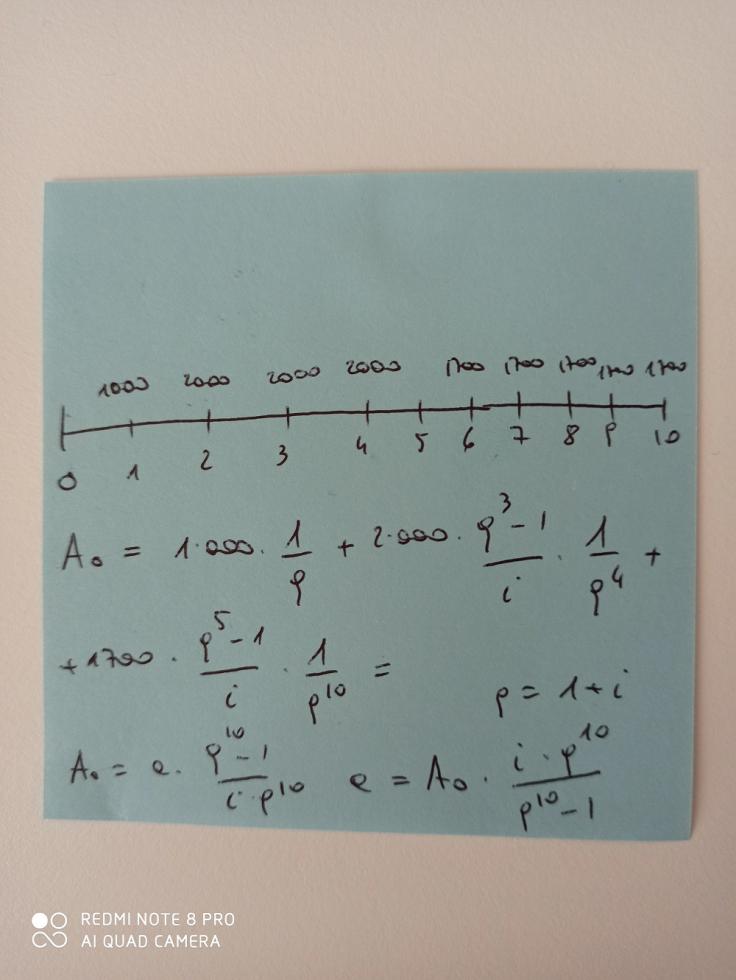 1000 2000 2000 2000 1700 1700 1700 1700 1700
0 1 2 3 4 5 6 7 8 9 10
A₀ = 1·000 · 1/ρ + 2·000 · (ρ³ - 1)/i · 1/ρ⁴ +
+ 1700 · (ρ⁵ - 1)/i · 1/ρ¹⁰ =
ρ = 1 + i
A₀ = e · (ρ¹⁰ - 1)/(i · ρ¹⁰) e = A₀ · (i · ρ¹⁰)/(ρ¹⁰ - 1)
REDMI NOTE 8 PRO
AI QUAD CAMERA